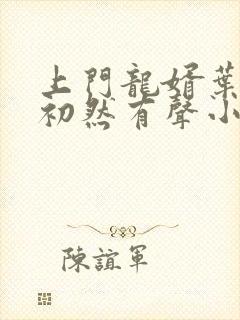 上門龍婿葉
初然有聲小
陳誼軍